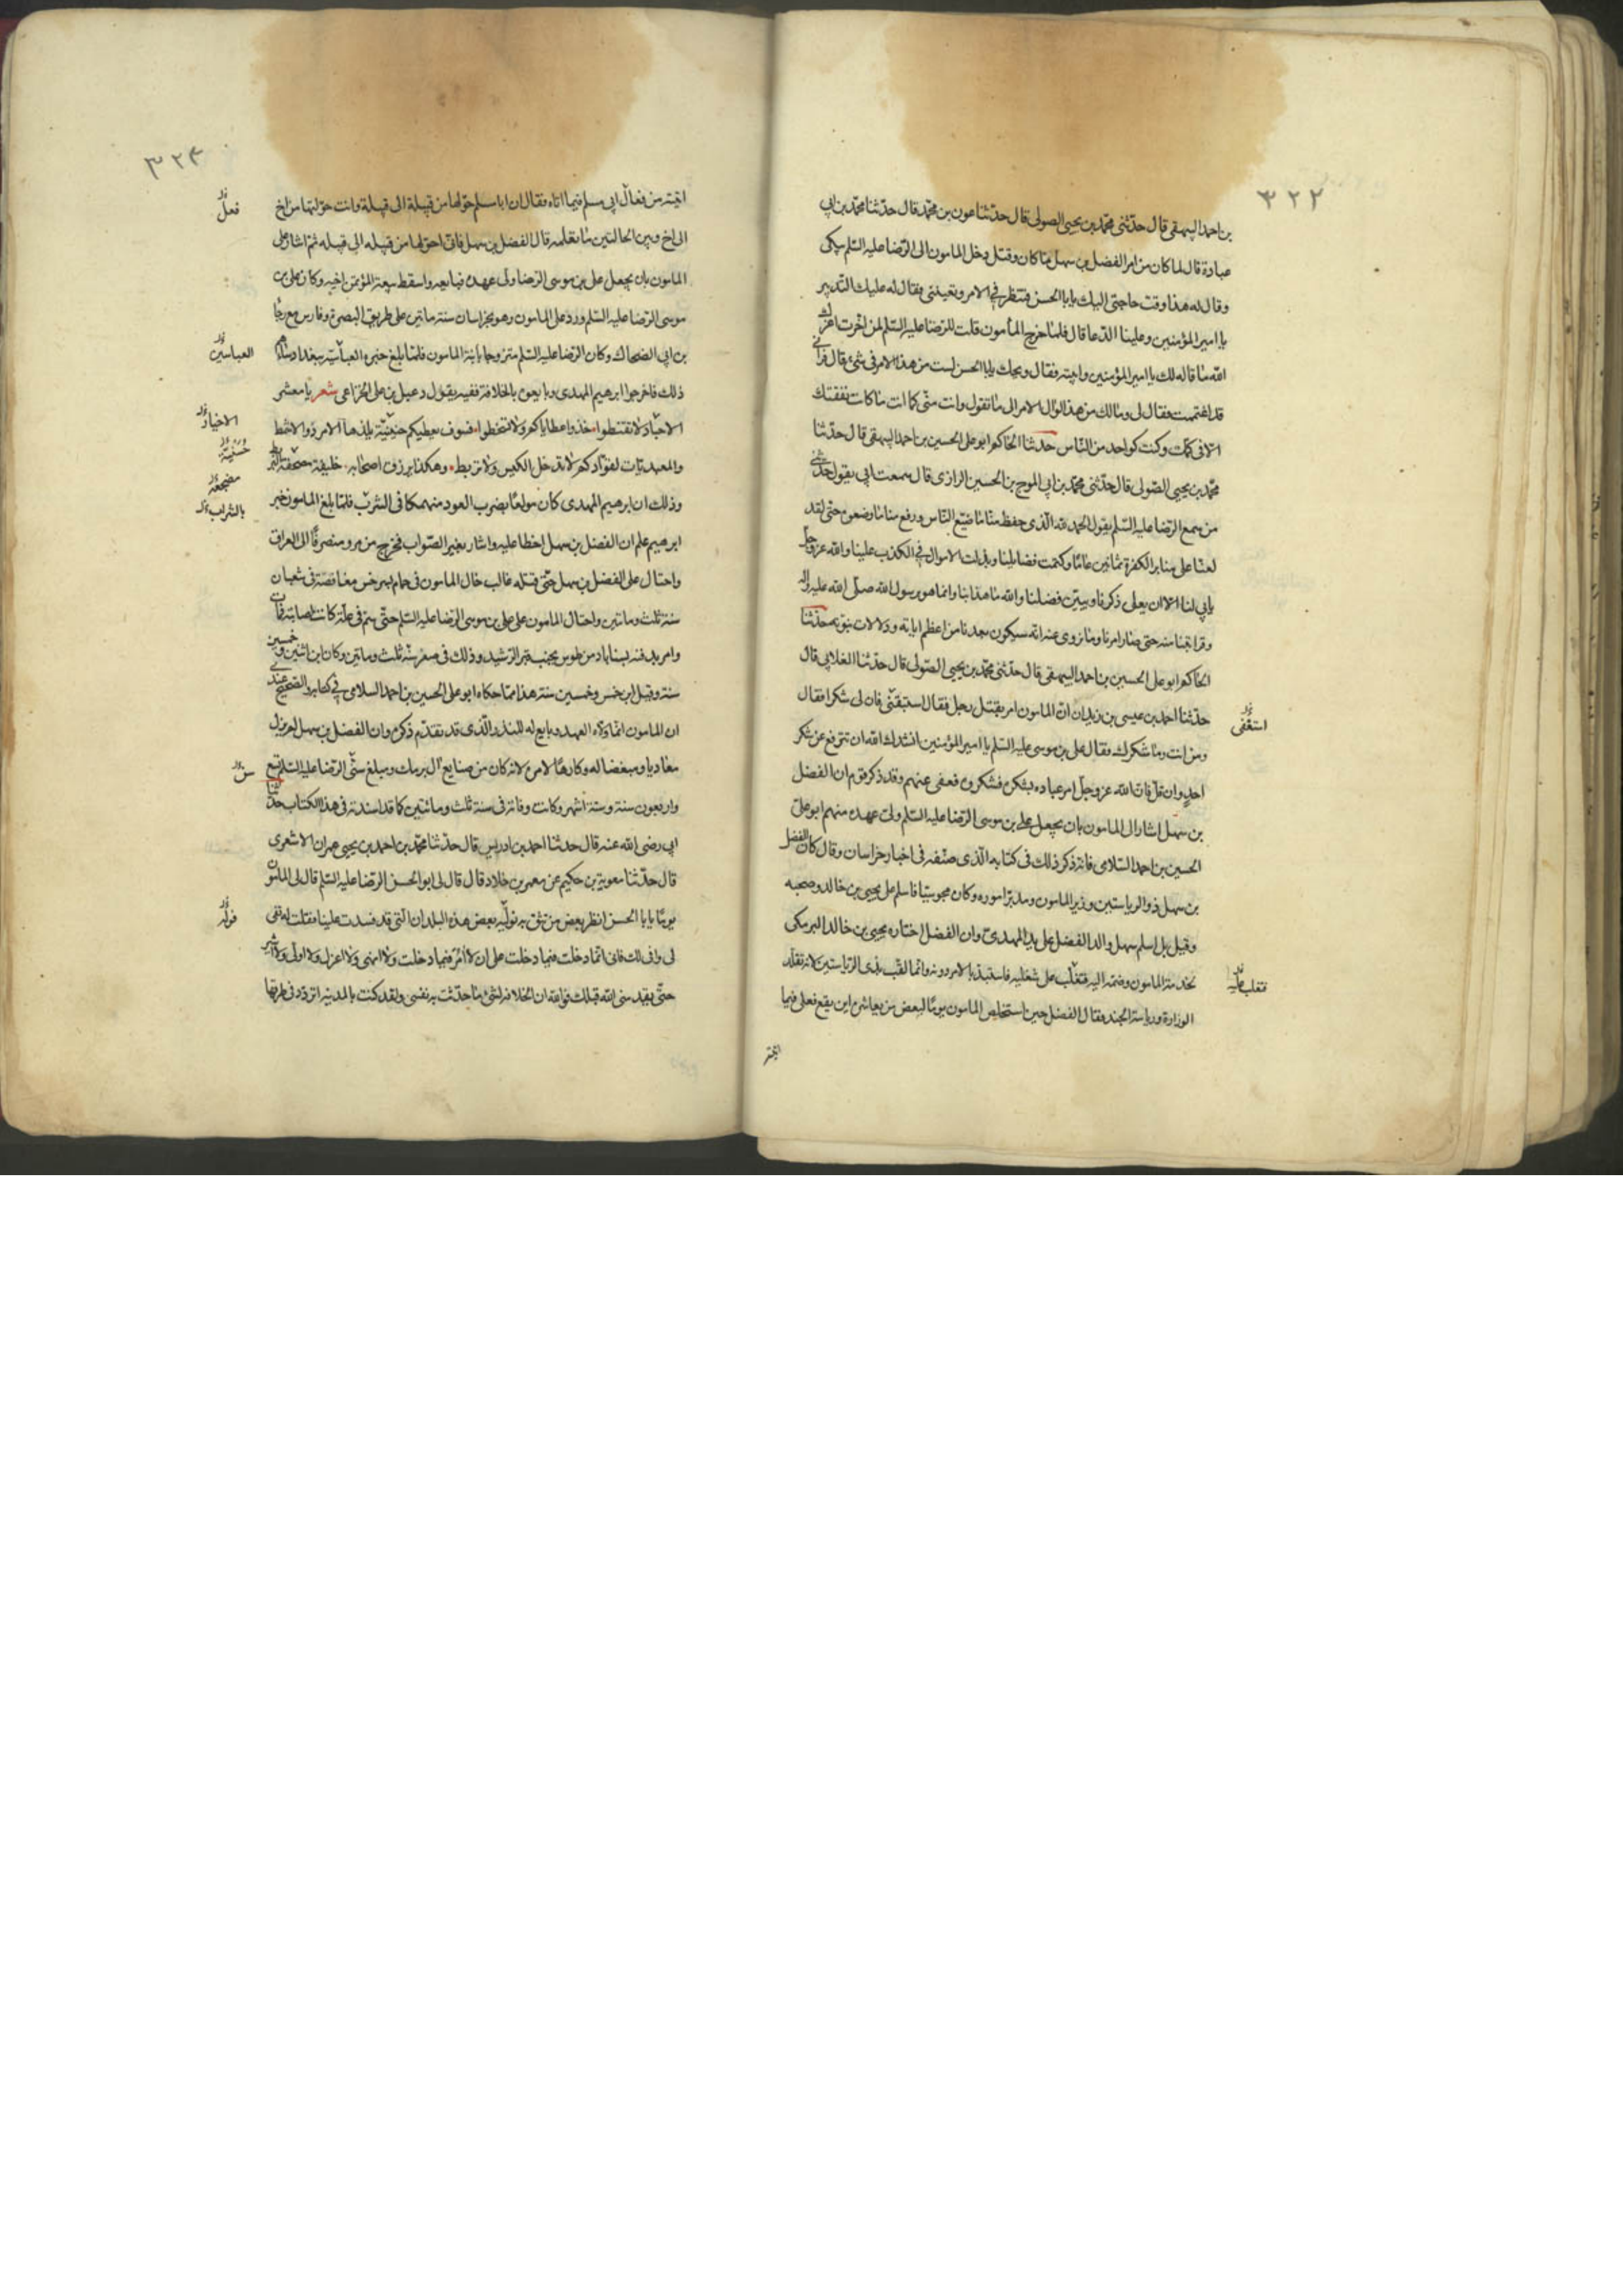 ٣٢٢
بن احمد البيهقى قال حدّثنى محمّد بن يحيى الصولى قال حدّثنا عون بن محمّد قال حدّثنا محمّد بن ابى
عبادة قال لما كان من امر الفضل بن سهل ما كان وقتل دخل المامون الى الرّضا عليه السّلم يبكى
وقال له هذا وقت حاجتى اليك يابا الحسن فتنظر فى الامر وتعيننى فقال له عليك التدبير
يا امير المؤمنين وعلينا الدّعا قال فلمّا خرج المأمون قلت للرّضا عليه السّلم لم اخّرت اعزّك
الله ما قاله لك يا امير المؤمنين وابيته فقال ويحك يابا الحسن لست من هذا الامر فى شئ قال فرآنى
قد اغتممت فقال لى ومالك من هذا لو آل الامر الى ما تقول وانت منّى كما انت ما كانت نفقتك
الا فى كمّك وكنت كواحد من النّاس حدثنا الحاكم ابو على الحسين بن احمد البيهقى قال حدّثنا
محمّد بن يحيى الصّولى قال حدّثنى محمّد بن ابى الموج بن الحسين الرازى قال سمعت ابى يقول حدّثنى
من سمع الرّضا عليه السّلم يقول الحمد لله الّذى حفظ منّا ما ضيّع النّاس ورفع منّا ما وضعوه حتّى لقد
لعنّا على منابر الكفرة ثمانين عامًا وكتمت فضايلنا وبذلت الاموال فى الكذب علينا والله عزّ وجلّ
يابى لنا الا ان يعلى ذكرنا ويبيّن فضلنا والله ما هذا بنا وانما هو برسول الله صلّى الله عليه واله
وقرابتنا منه حتى صار امرنا وما نروى عنه انّه سيكون بعدنا من اعظم اياته ودلالات نبوّته حدّثنا
الحاكم ابو على الحسين بن احمد البيهقى قال حدّثنى محمّد بن يحيى الصّولى قال حدّثنا الغلابى قال
حدّثنا احمد بن عيسى بن زيد ان انّ المامون امر بقتل رجل فقال استبقنى فان لى شكرا فقال
استعفى
ومن انت وما شكرك فقال على بن موسى عليه السّلم يا امير المؤمنين انشدك الله ان تترفع عن شكر
احدٍ وان قلّ فانّ الله عز وجلّ امر عباده بشكره فشكروه فعفى عنهم وقد ذكر قوم ان الفضل
بن سهل اشار الى المامون بان يجعل على بن موسى الرّضا عليه السّلم ولى عهده منهم ابو على
الحسين بن احمد السّلامى فانه ذكر ذلك فى كتابه الّذى صنّفه فى اخبار خراسان وقال كان الفضل
بن سهل ذو الرياستين وزير المامون ومدبّر اموره وكان مجوسيّا فاسلم على يحيى بن خالد وصحبه
وقيل بل اسلم سهل والد الفضل على يد المهدى وان الفضل اختاره يحيى بن خالد البرمكى
لخدمة المامون وضمّه اليه فتغلّب على شغليه فاستبدّ بالامر دونه وانما لقّب بذى الرّياستين لانه تقلّد
فتغلب عليه
الوزارة ورياسة الجند فقال الفضل حين استخلص المامون يومًا لبعض من يعاشره اين يقع فعلى فيما
اتيته
٣٢٤
اتيته من فعال ابى مسلم فيما اتاه فقال ان ابا مسلم حوّلها من قبيلة الى قبيلة وانت حوّلتها من اخ
فعل
الى اخ وبين الحالتين ما تعلمه قال الفضل بن سهل فانى احوّلها من قبيله الى قبيله ثم اشار على
المامون بان يجعل على بن موسى الرّضا ولى عهده فبايعه واسقط بيعة المؤتمن اخيه وكان على بن
موسى الرّضا عليه السّلم ورد على المامون وهو بخراسان سنة ماتين على طريق البصرة وفارس مع رجا
بن ابى الضحاك وكان الرّضا عليه السّلم متزوجا بابنة المامون فلمّا بلغ خبره العبّاسيّة ببغداد ساءهم
العباسين
ذلك فاخرجوا ابرهيم المهدى وبايعوه بالخلافة ففيه يقول دعبل بن على الخزاعى شعر يا معشر
الاجناد لا تقنطوا خذوا عطاياكم ولا تسخطوا فسوف يعطيكم حنينيّة يلذها الامرد والاشمط
الاخيار
والمعبديات لقوّادكم لا تدخل الكيس ولا تربط وهكذا يرزق اصحابه خليفة مصحفه البربط
وذلك ان ابرهيم المهدى كان مولعًا بضرب العود منهمكا فى الشرب فلمّا بلغ المامون خبر
بالشراب
ابرهيم علم ان الفضل بن سهل اخطا عليه واشار بغير الصّواب فخرج من مرو منصرفًا الى العراق
واحتال على الفضل بن سهل حتّى قتله غالب خال المامون فى حمام بسرخس مغافصة فى شعبان
سنة ثلث وماتين واحتال المامون على على بن موسى الرّضا عليه السّلم حتّى سمّ فى علّة كانت اصابته فمات
وامر بدفنه بسناباد من طوس بجنب قبر الرّشيد وذلك فى صفر سنة ثلث وماتين وكان ابن اثنين وخمسين
سنة وقيل ابن خمس وخمسين سنة هذا ممّا حكاه ابو على الحسين بن احمد السلامى فى كتابه والصّحيح عندى
ان المامون انّما ولّاه العهد وبايع له للنذر الّذى قد تقدّم ذكره وان الفضل بن سهل لم يزل
معاديا ومبغضا له وكارهًا لامره لانه كان من صنايع آل برمك ومبلغ سنّ الرّضا عليه السّلم تسع
واربعون سنة وستة اشهر وكانت وفاته فى سنة ثلث ومائتين كما قد اسندته فى هذا الكتاب حدّثنا
ابى رضى الله عنه قال حدثنا احمد بن ادريس قال حدّثنا محمّد بن احمد بن يحيى عمران الاشعرى
قال حدّثنا معوية بن حكيم عن معمر بن خلاد قال قال لى ابو الحسن الرّضا عليه السّلم قال لى المأمون
يومًا يابا الحسن انظر بعض من تثق به نولّيه بعض هذه البلدان الّتى قد فسدت علينا فقلت له تفى
لى وافى لك فانى انّما دخلت فيما دخلت على ان لا آمر فيما دخلت ولا انهى ولا اعزل ولا اولّى ولا اشير
حتّى يقدمنى الله قبلك فوالله ان الخلافة لشئ ما حدّثت به نفسى ولقد كنت بالمدينة اتردّد فى طرقها